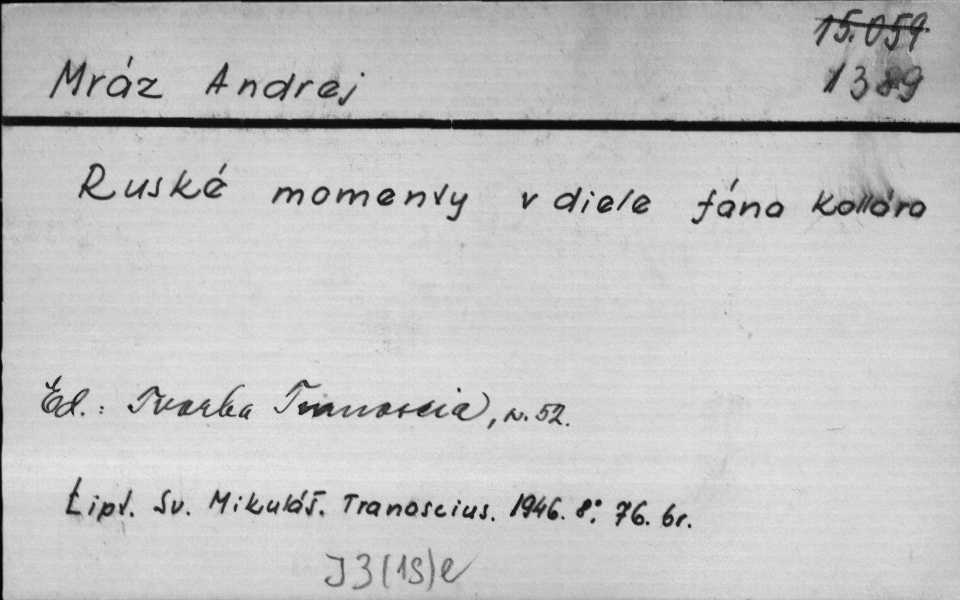 15.059
1389
Mráz Andrej
Ruské momenty v diele Jána Kollára
Ed.: Tvorba Tranoscia, sv. 52.
Lipt. Sv. Mikuláš. Tranoscius. 1946. 8°. 76. br.
J3(1S)e